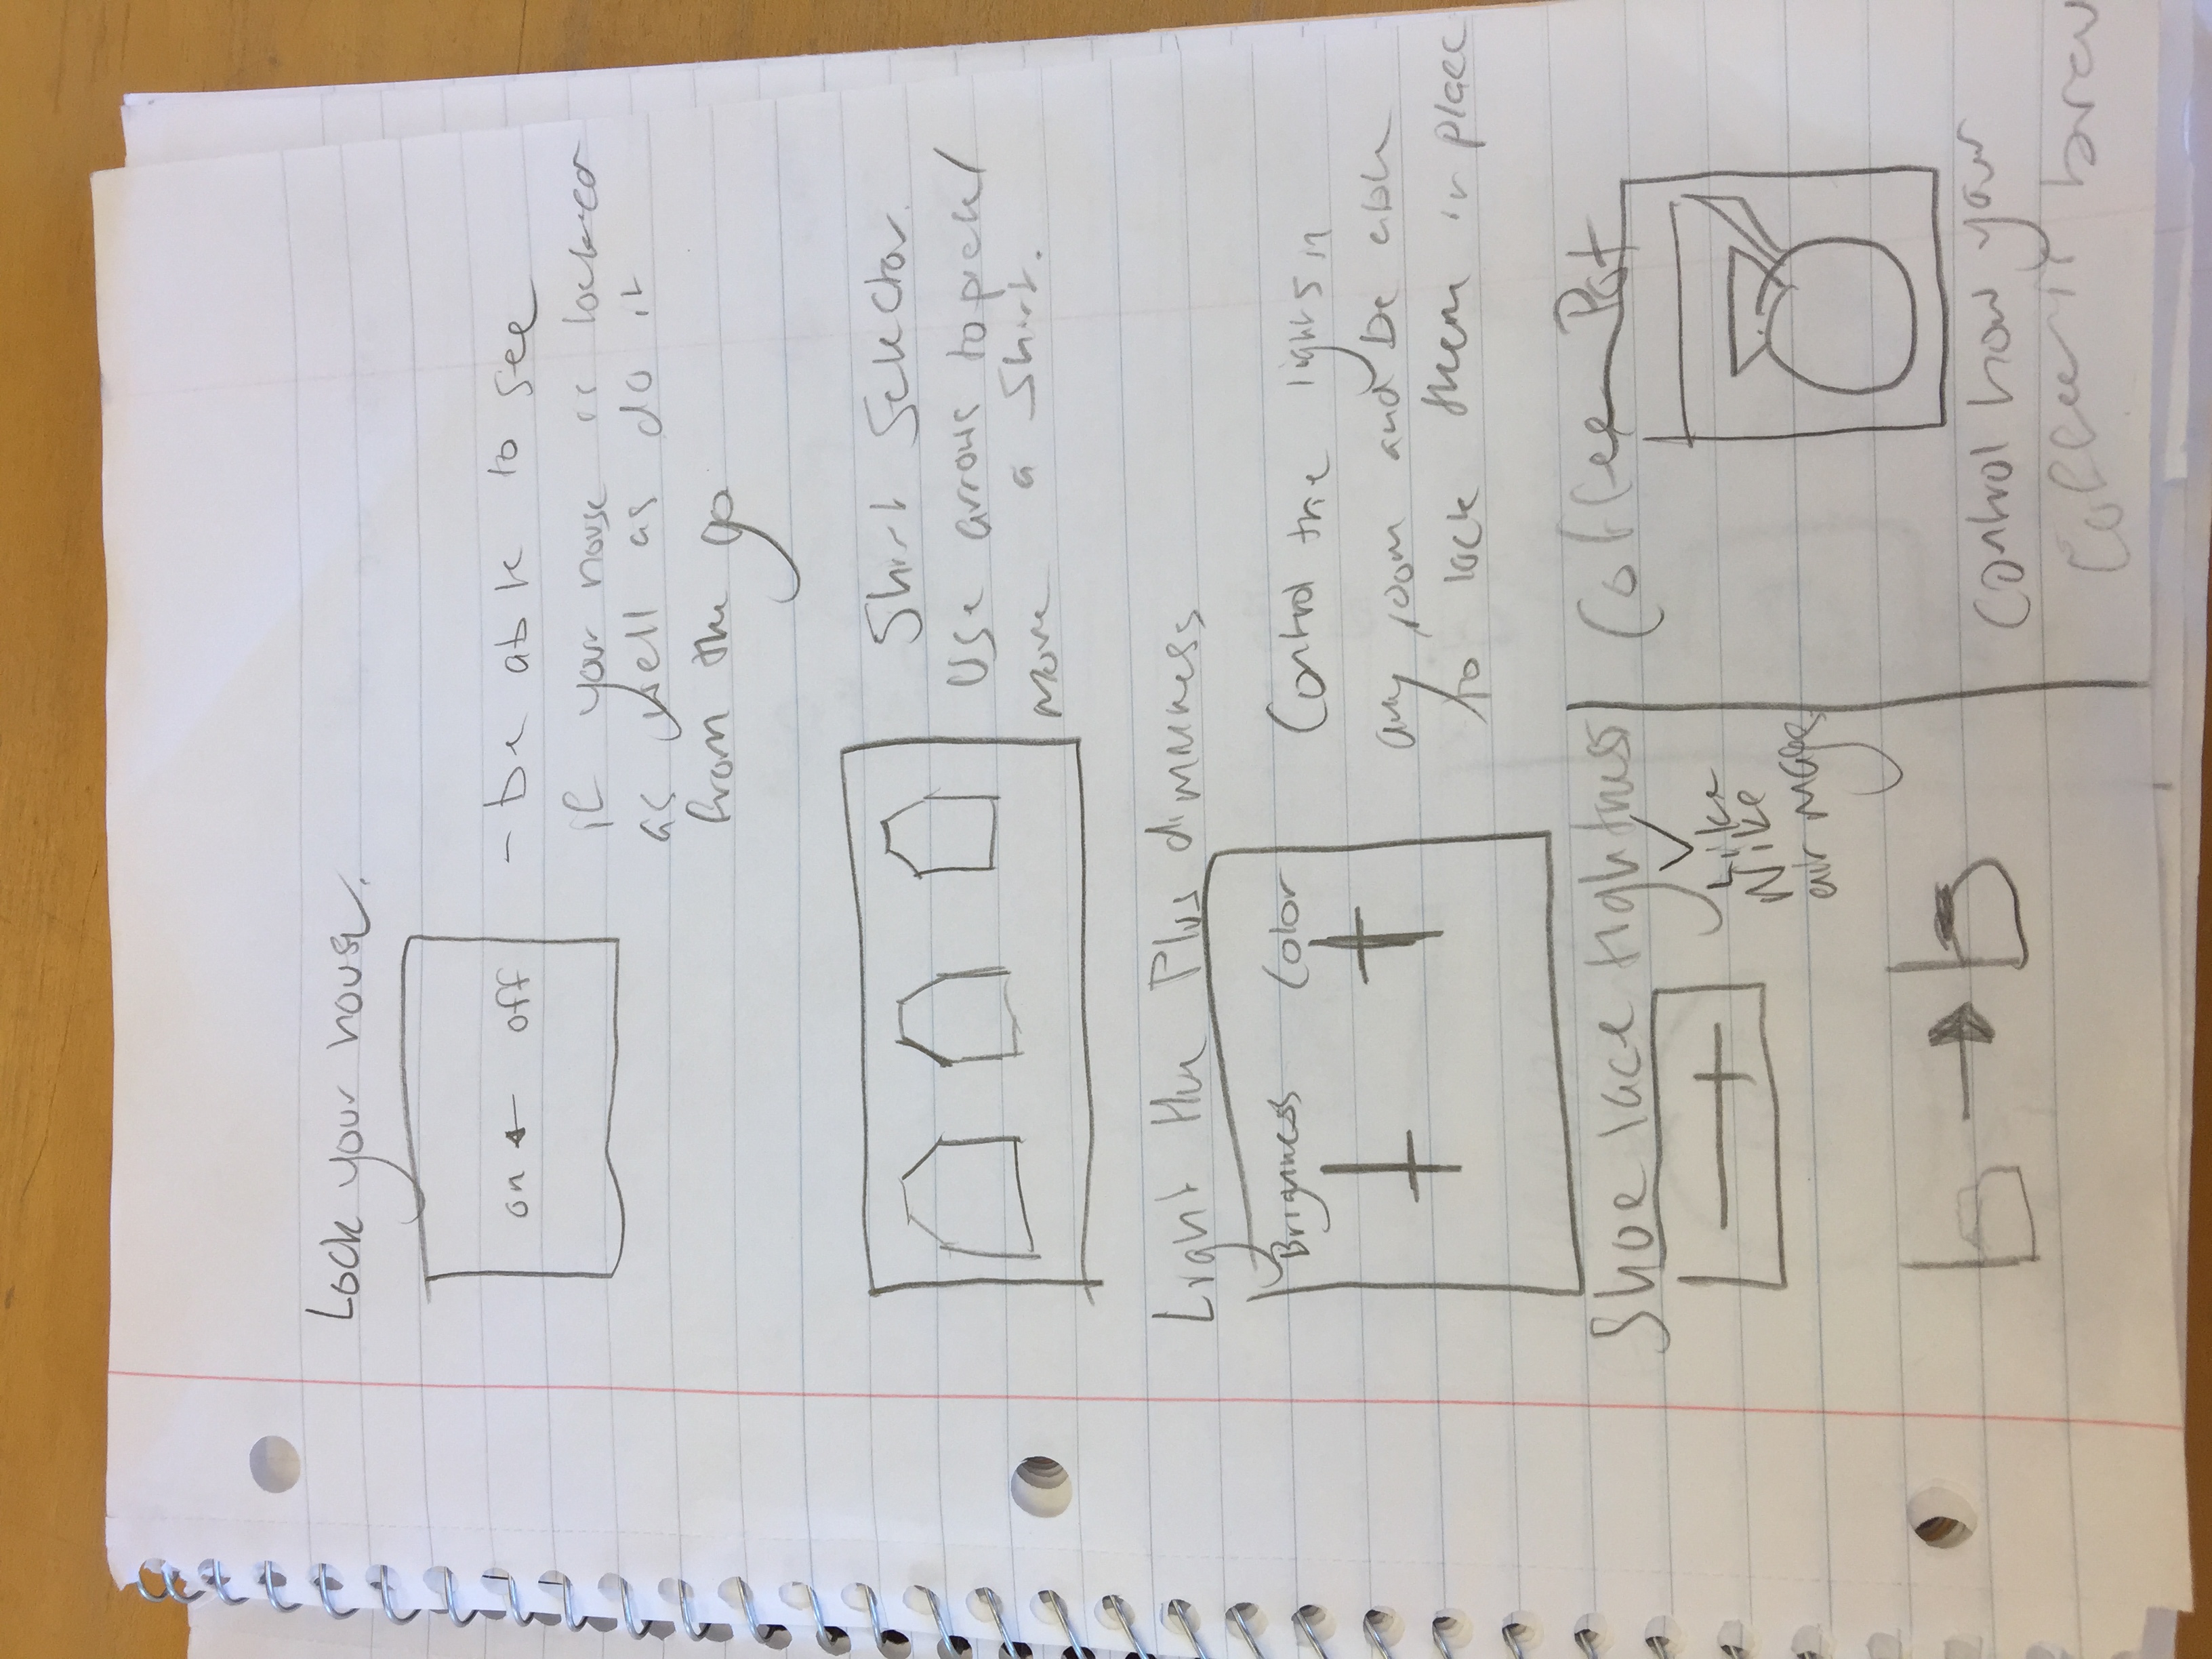 Lock your house.
on ← off
- be able to see
if your house is locked
as well as do it
from the go
Shirt Selector.
Use arrows to pick/
move a shirt.
Light Hue Plus dimmness
Brighness Color
Control the lights in
any room and be able
to lock them in place
Shoe lace tightness
Like
Nike
air mags
Coffee Pot
Control how your
Coffee is brew